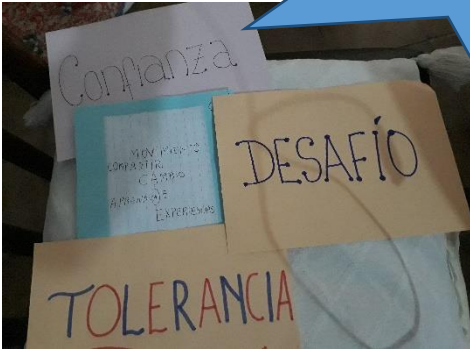 Confianza
MOVIMIENTO
COMPARTIR
CAMBIO
APRENDIZAJE
EXPERIENCIAS
DESAFÍO
TOLERANCIA